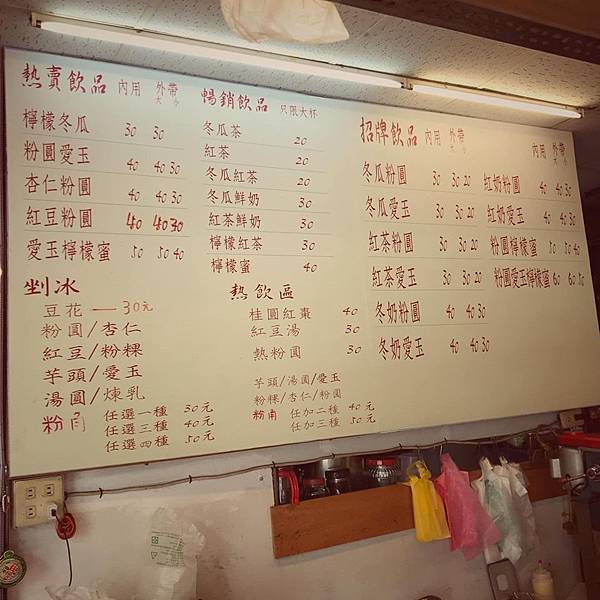 熱賣飲品 內用 外帶 大 小
檸檬冬瓜 30 30
粉圓愛玉 40 40 30
杏仁粉圓 40 40 30
紅豆粉圓 40 40 30
愛玉檸檬蜜 50 50 40
剉冰
豆花 — 30元
粉圓/杏仁
紅豆/粉粿
芋頭/愛玉
湯圓/煉乳
粉角
任選一種 30元
任選三種 40元
任選四種 50元
暢銷飲品 只限大杯
冬瓜茶 20
紅茶 20
冬瓜紅茶 20
冬瓜鮮奶 30
紅茶鮮奶 30
檸檬紅茶 30
檸檬蜜 40
熱飲區
桂圓紅棗 40
紅豆湯 30
熱粉圓 30
芋頭/湯圓/愛玉
粉粿/杏仁/粉圓
粉角 任加二種 40元
任加三種 50元
招牌飲品 內用 外帶 大 小
冬瓜粉圓 30 30 20
冬瓜愛玉 30 30 20
紅茶粉圓 30 30 20
紅茶愛玉 30 30 20
冬奶粉圓 40 40 30
冬奶愛玉 40 40 30
內用 外帶 大 小
紅奶粉圓 40 40 30
紅奶愛玉 40 40 30
粉圓檸檬蜜 50 50 40
粉圓愛玉檸檬蜜 60 60 50